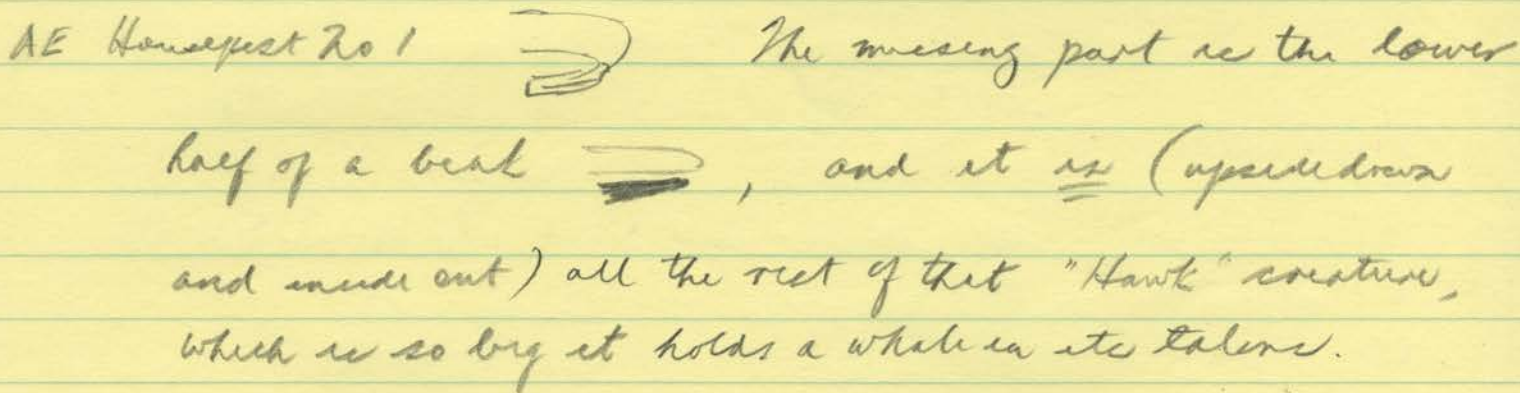 AE Housepest No 1 The missing part is the lower
half of a beak , and it is (upsidedown
and inside out) all the rest of that "Hawk" creature,
which is so big it holds a whale in its talons.